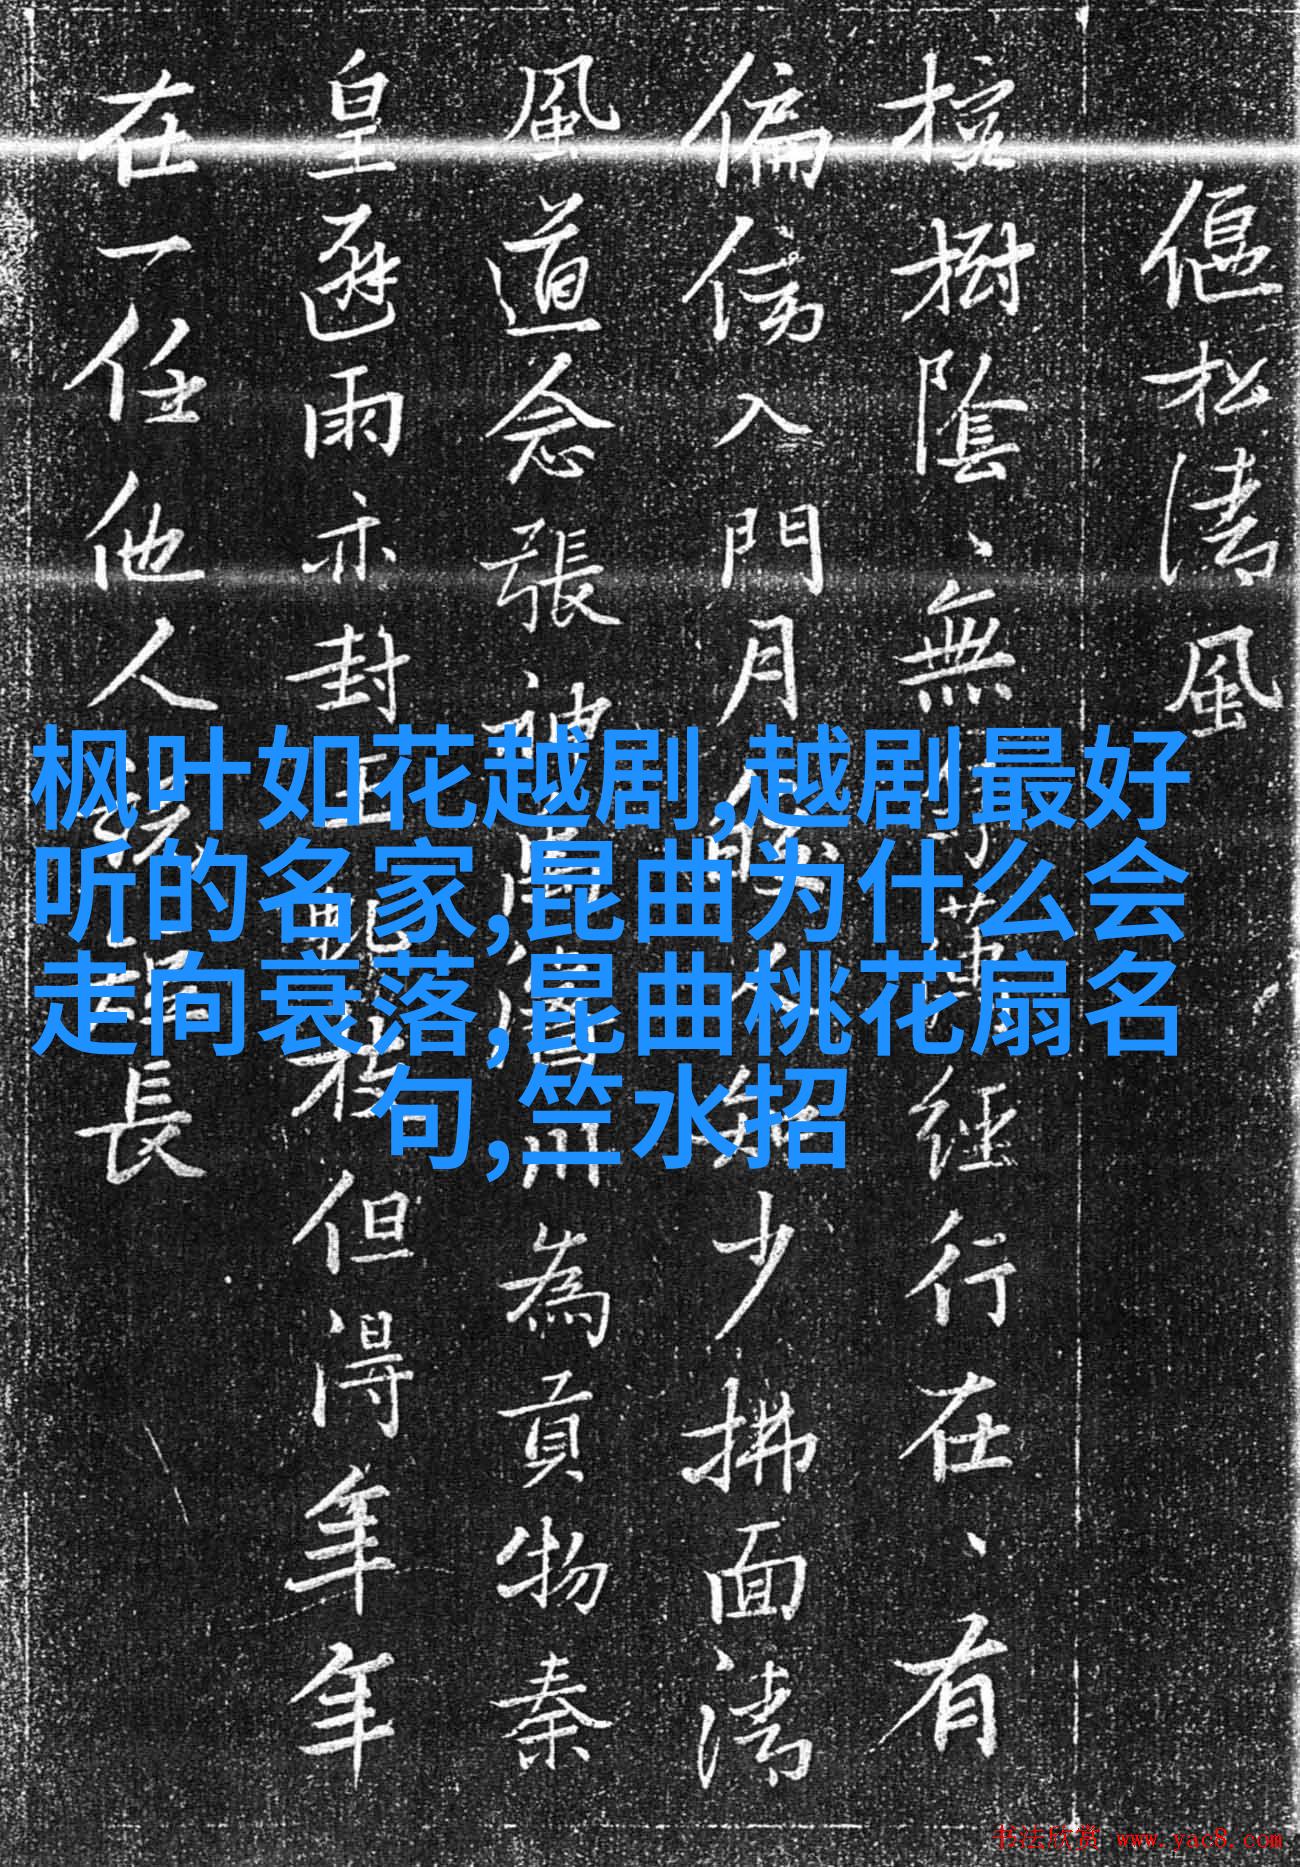 偃松清風
㨕樹陰、無
經行在、有
偏傍入門月
少拂面清
風道念張神
為貢物秦
皇避雨亦封
但得年年
在一任他人
長
枫叶如花越剧,越剧最好
听的名家,昆曲为什么会
走向衰落,昆曲桃花扇名
句,竺水招
书法欣赏 www.yac8.com